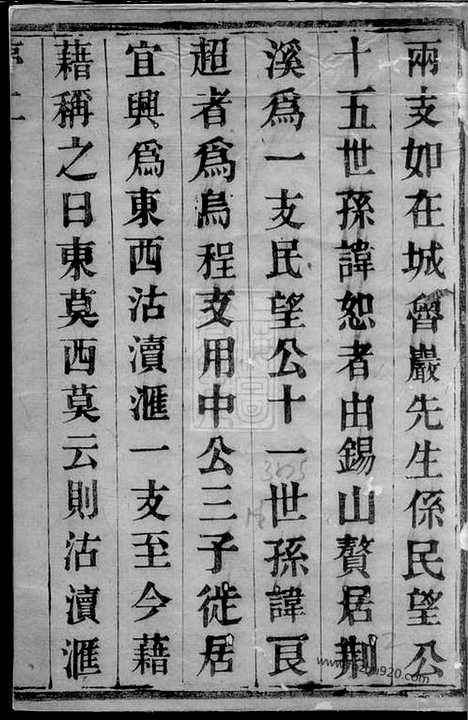 兩支如在城魯巖先生係民望公
十五世孫諱恕者由錫山贅居荆
溪爲一支民望公十一世孫諱艮
超者爲烏程支用中公三子徙居
宜興爲東西沽瀆滙一支至今藉
藉稱之曰東莫西莫云則沽瀆滙